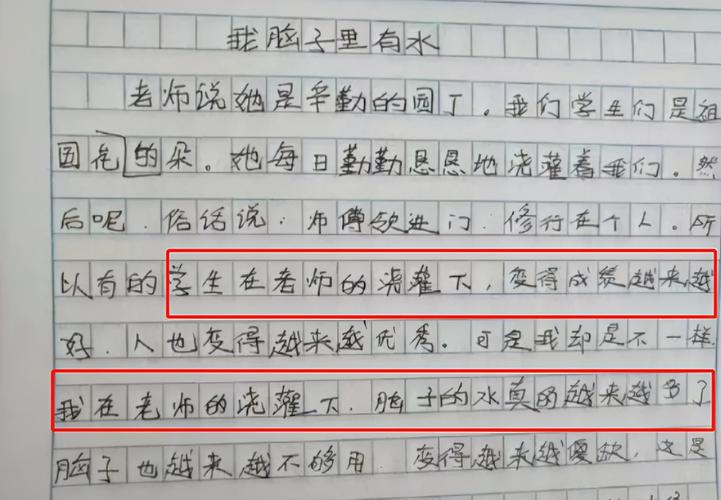 我脑子里有水
老师说她是辛勤的园丁。我们学生们是祖
国花的朵。她每日勤勤恳恳地浇灌着我们。然
后呢.俗话说.师傅领进门.修行在个人。所
以有的学生在老师的浇灌下，变得成绩越来越
好.人也变得越来越优秀。可是我却是不一样.
我在老师的浇灌下.脑子的水真的越来越多了
脑子也越来越不够用.变得越来越，这是